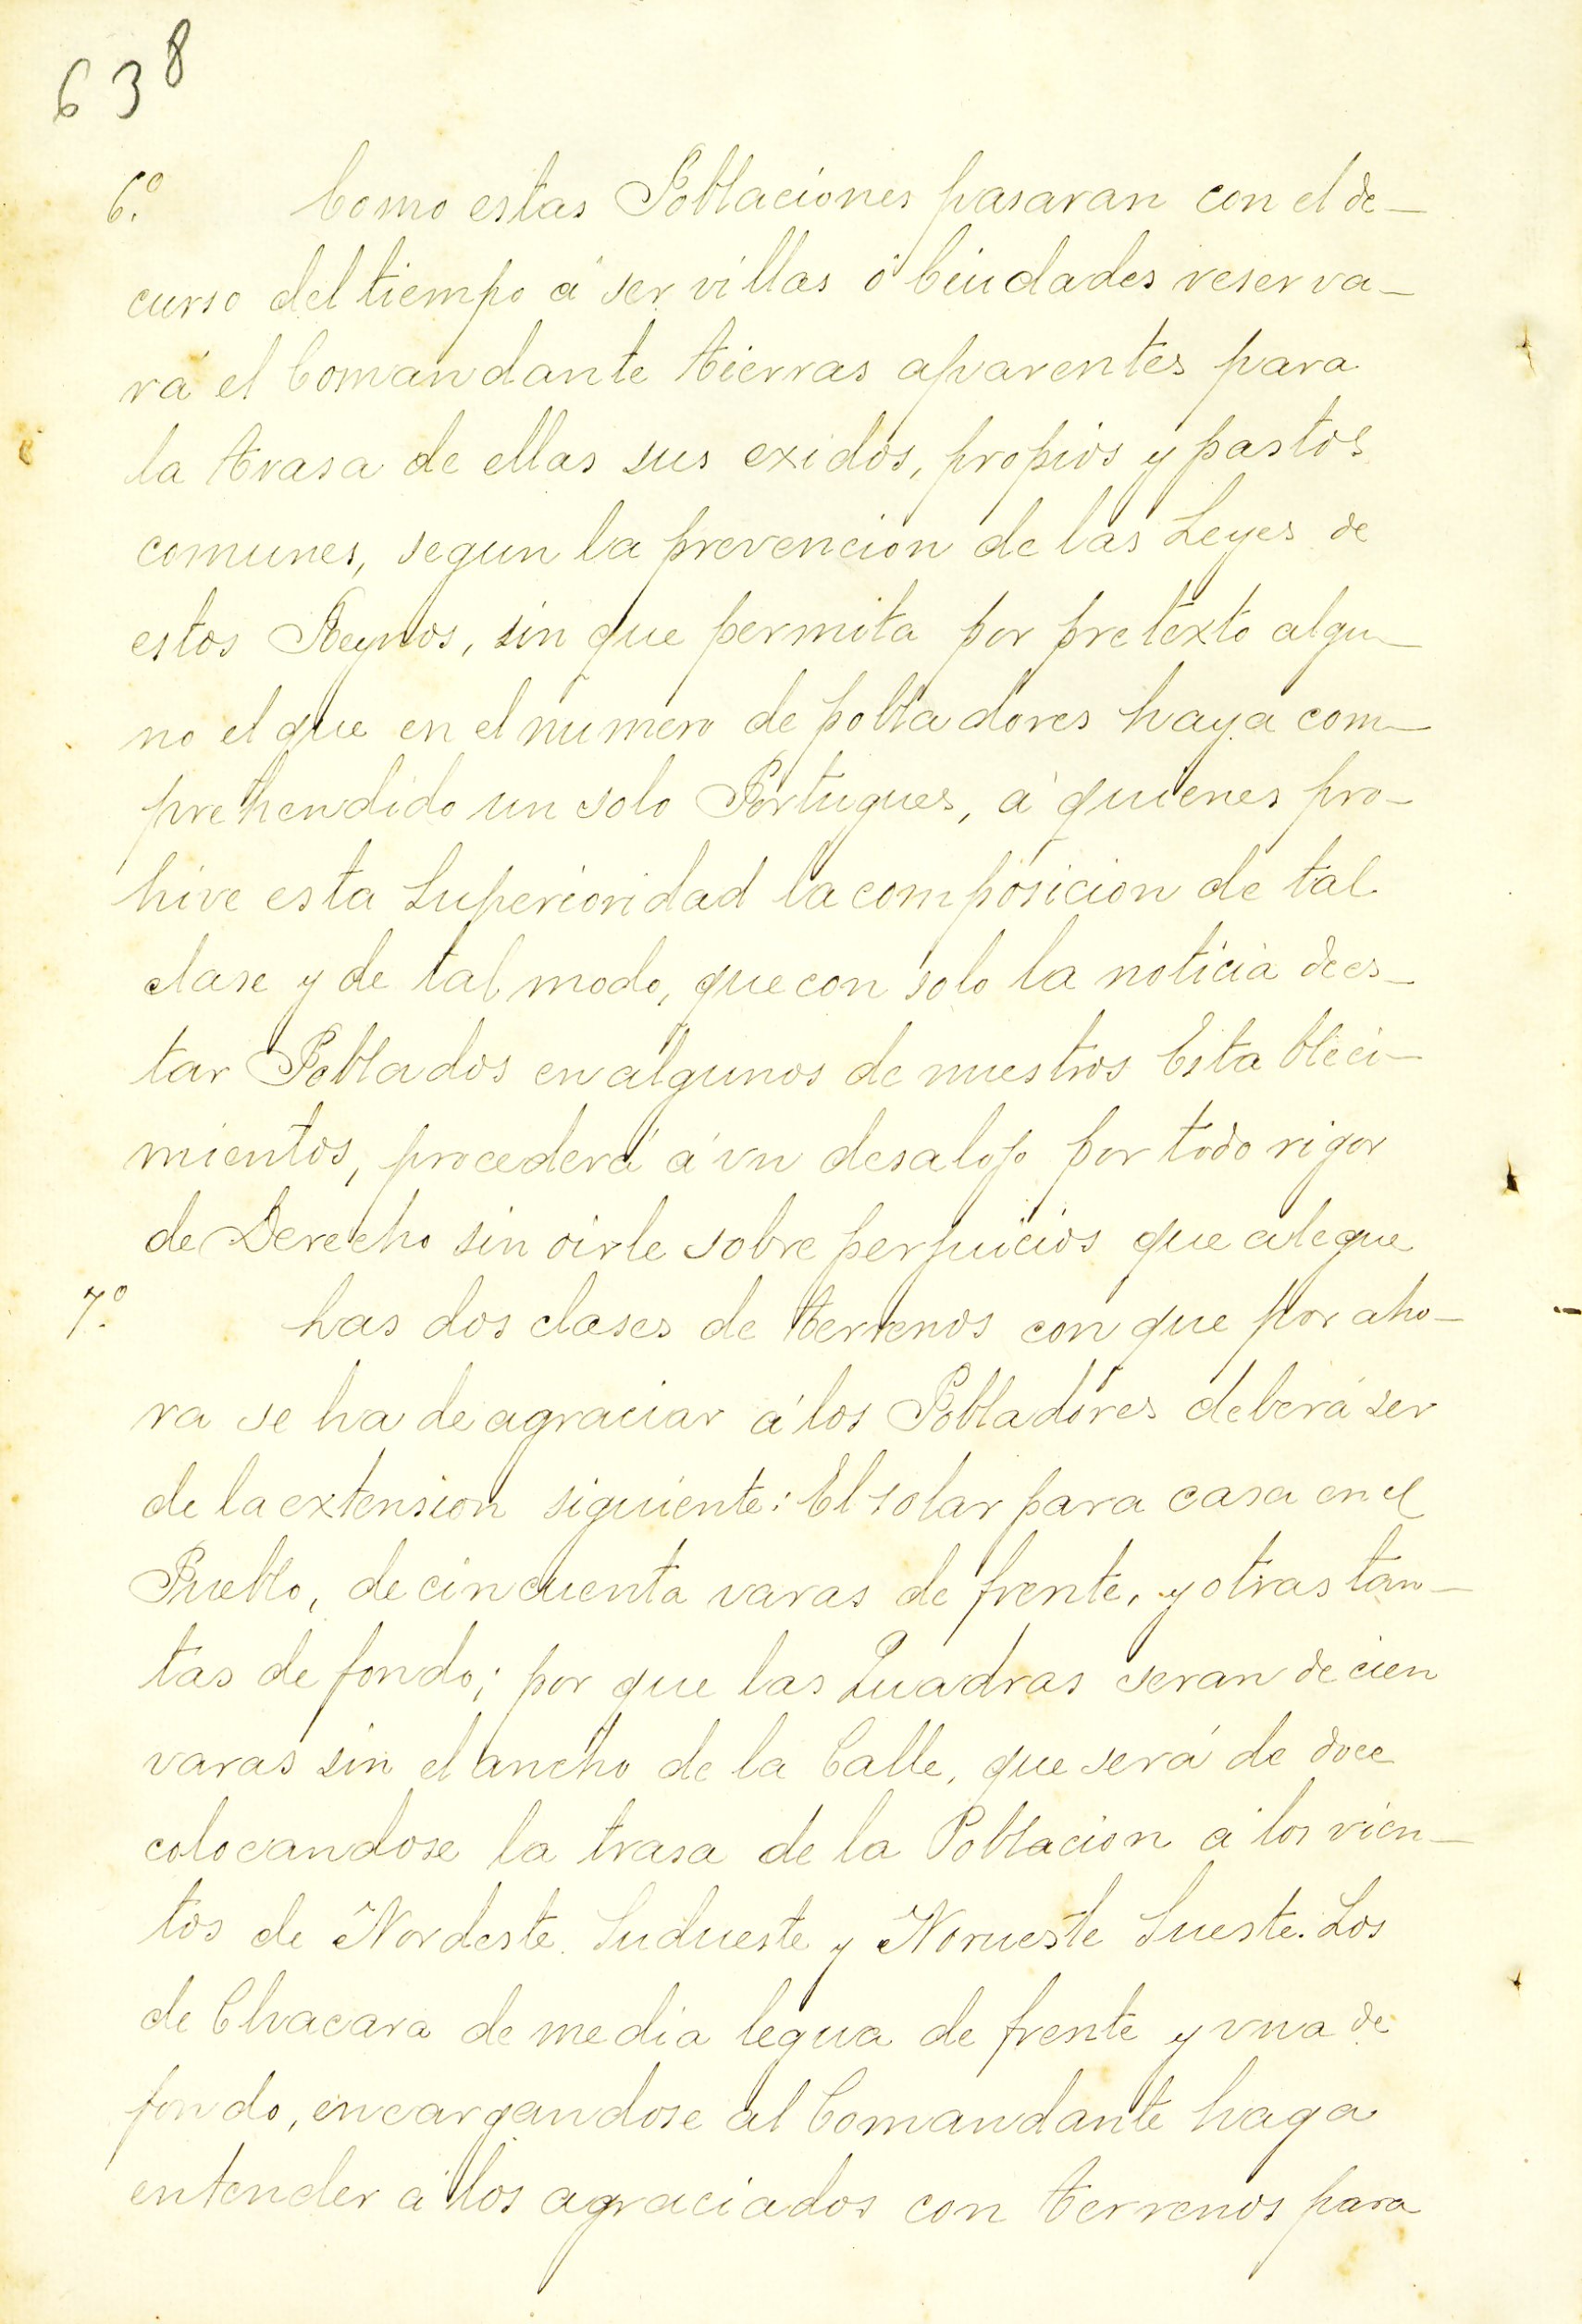 638
6.º Como estas Poblaciones pasaran con el de-
curso del tiempo á ser villas ó Ciudades reserva-
rá el Comandante tierras aparentes para
la trasa de ellas sus exidos, propios y pastos
comunes, segun la prevencion de las Leyes de
estos Reynos, sin que permita por pretexto algu-
no el que en el numero de pobladores haya com-
prehendido un solo Portugues, á quienes pro-
hive esta Superioridad la composicion de tal
clase y de tal modo, que con solo la noticia de es-
tar Poblados en algunos de nuestros Estableci-
mientos, procederá á vn desalojo por todo rigor
de Derecho sin oirle sobre perjuicios que alegue
7.º Las dos clases de terrenos con que por aho-
ra se ha de agraciar á los Pobladores deberá ser
de la extension siguiente: El solar para casa en el
Pueblo, de cincuenta varas de frente, y otras tan-
tas de fondo; por que las Quadras seran de cien
varas sin el ancho de la Calle, que será de doce
colocandose la trasa de la Poblacion á los vien-
tos de Nordeste. Sudueste y Norueste Sueste. Los
de Chacara de media legua de frente y vna de
fondo, encargandose al Comandante haga
entender á los agraciados con terrenos para